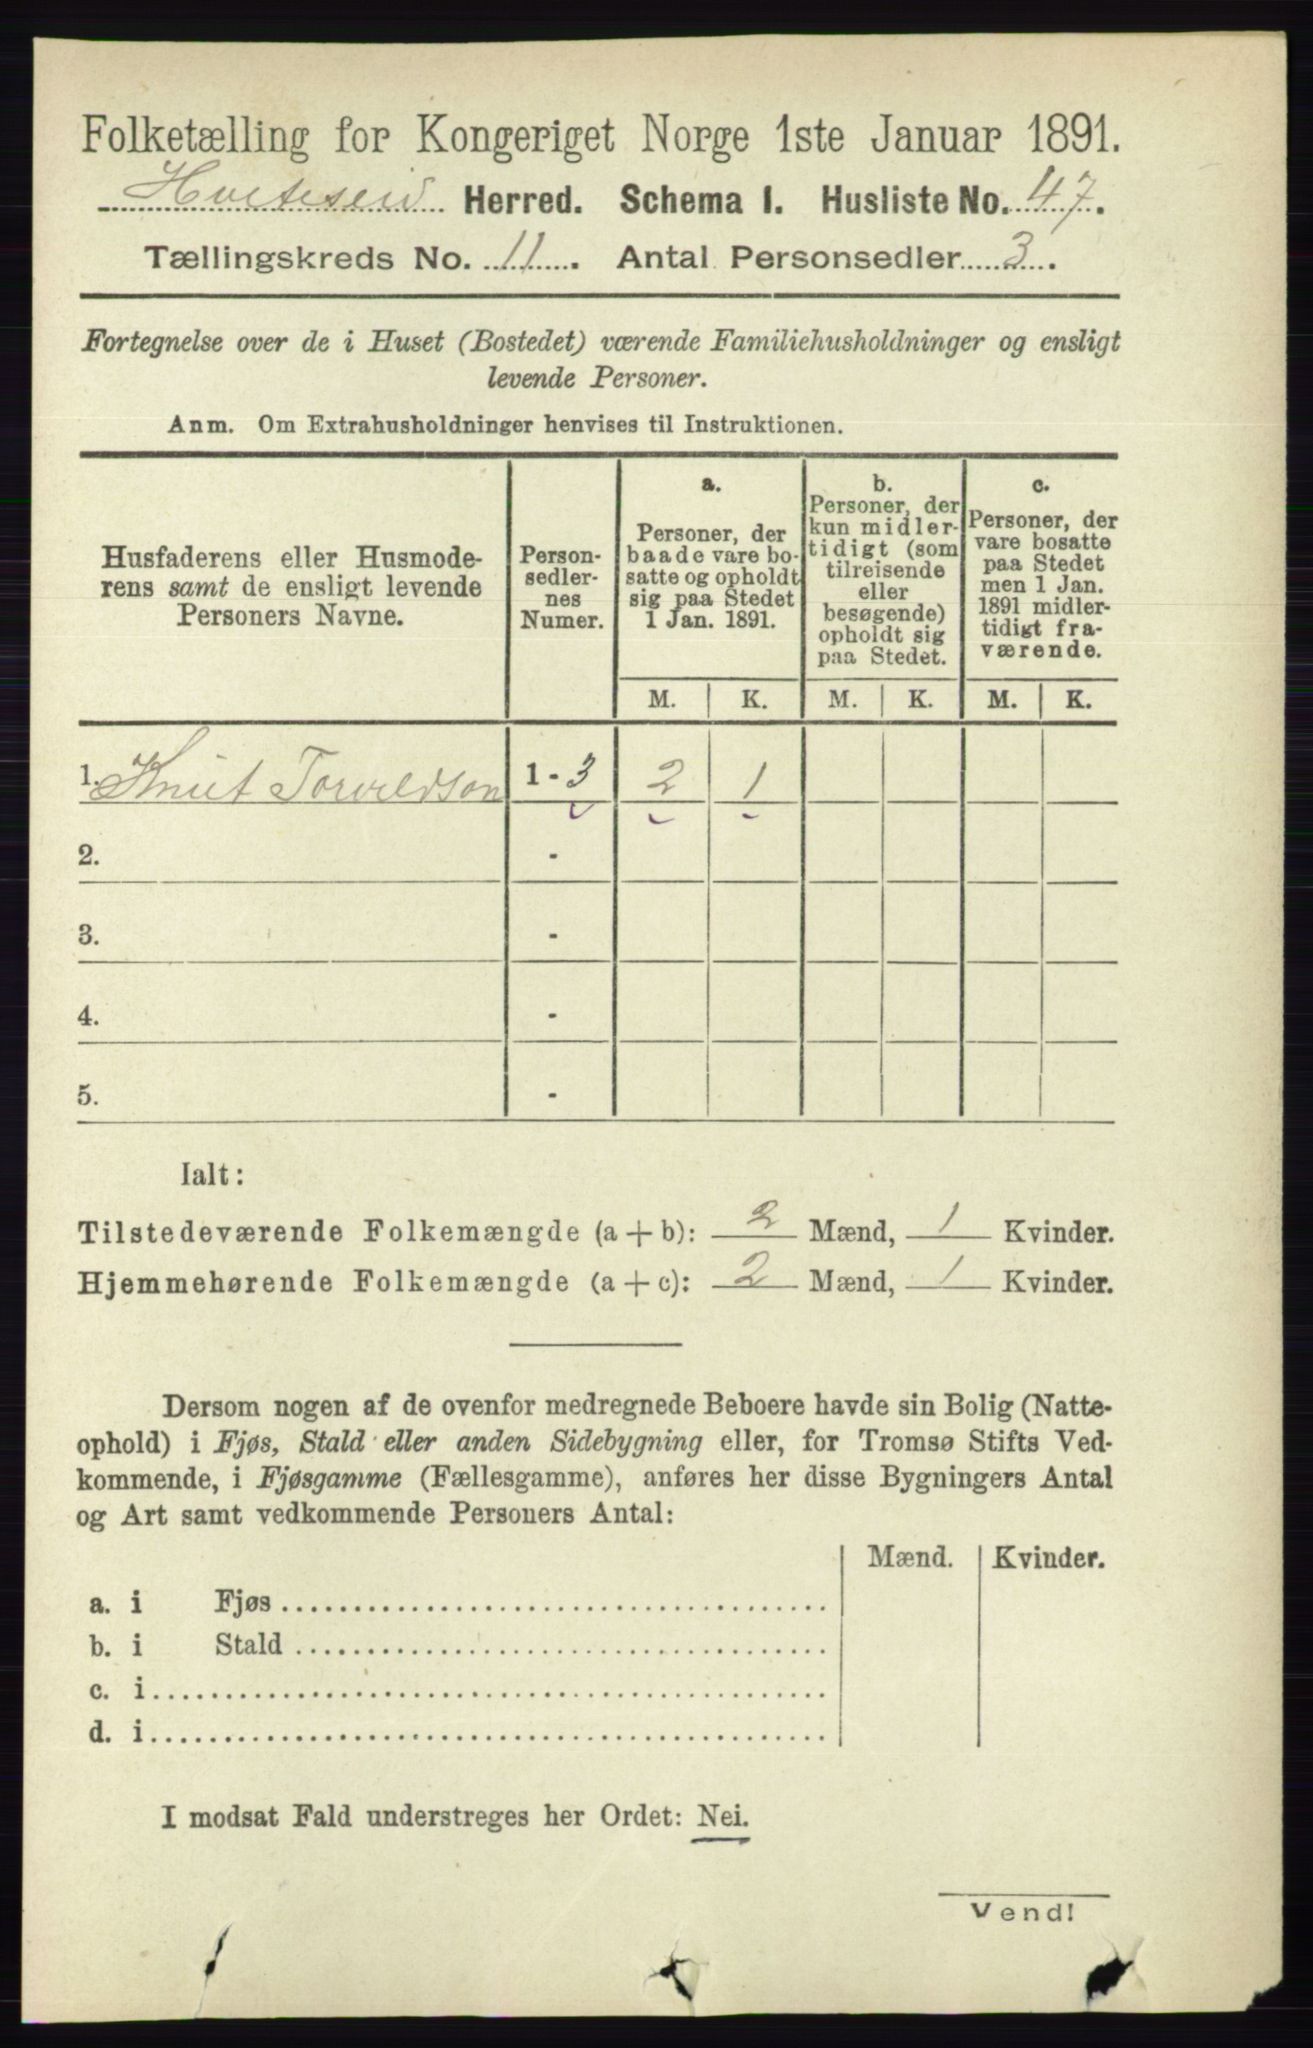 Folketælling for Kongeriget Norge 1ste Januar 1891.
Hviteseid Herred. Schema 1. Husliste No. 47.
Tællingskreds No. 11. Antal Personsedler 3.
Fortegnelse over de i Huset (Bostedet) værende Familiehusholdninger og ensligt
levende Personer.
Anm. Om Extrahusholdninger henvises til Instruktionen.
Husfaderens eller Husmode-
rens samt de ensligt levende
Personers Navne.
Person-
sedler-
nes
Numer.
a.
Personer, der
baade vare bo-
satte og opholdt
sig paa Stedet
1 Jan. 1891.
b.
Personer, der
kun midler-
tidigt (som
tilreisende
eller
besøgende)
opholdt sig
paa Stedet.
c.
Personer, der
vare bosatte
paa Stedet
men 1 Jan.
1891 midler-
tidigt fra-
værende.
M. K. M. K. M. K.
1. Knut Torvildson 1 - 3 2 1
2. -
3. -
4. -
5. -
Ialt:
Tilstedeværende Folkemængde (a + b): 2 Mænd, 1 Kvinder.
Hjemmehørende Folkemængde (a + c): 2 Mænd, 1 Kvinder.
Dersom nogen af de ovenfor medregnede Beboere havde sin Bolig (Natte-
ophold) i Fjøs, Stald eller anden Sidebygning eller, for Tromsø Stifts Ved-
kommende, i Fjøsgamme (Fællesgamme), anføres her disse Bygningers Antal
og Art samt vedkommende Personers Antal:
Mænd. Kvinder.
a. i Fjøs
b. i Stald
c. i
d. i
I modsat Fald understreges her Ordet: Nei.
Vend!